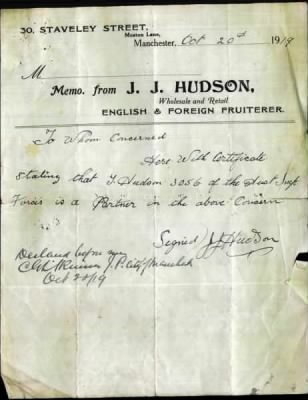 30. STAVELEY STREET,
Moston Lane,
Manchester, Oct 20th 1919
M
Memo. from J. J. HUDSON,
Wholesale and Retail
ENGLISH & FOREIGN FRUITERER.
To Whom Concerned
Here With Certificate
stating that J. Hudson 3056 of the Aust Imp
Forces is a Partner in the above Concern
Signed J J Hudson
Declared before me
J. P. City of Manchester
Oct 20/19